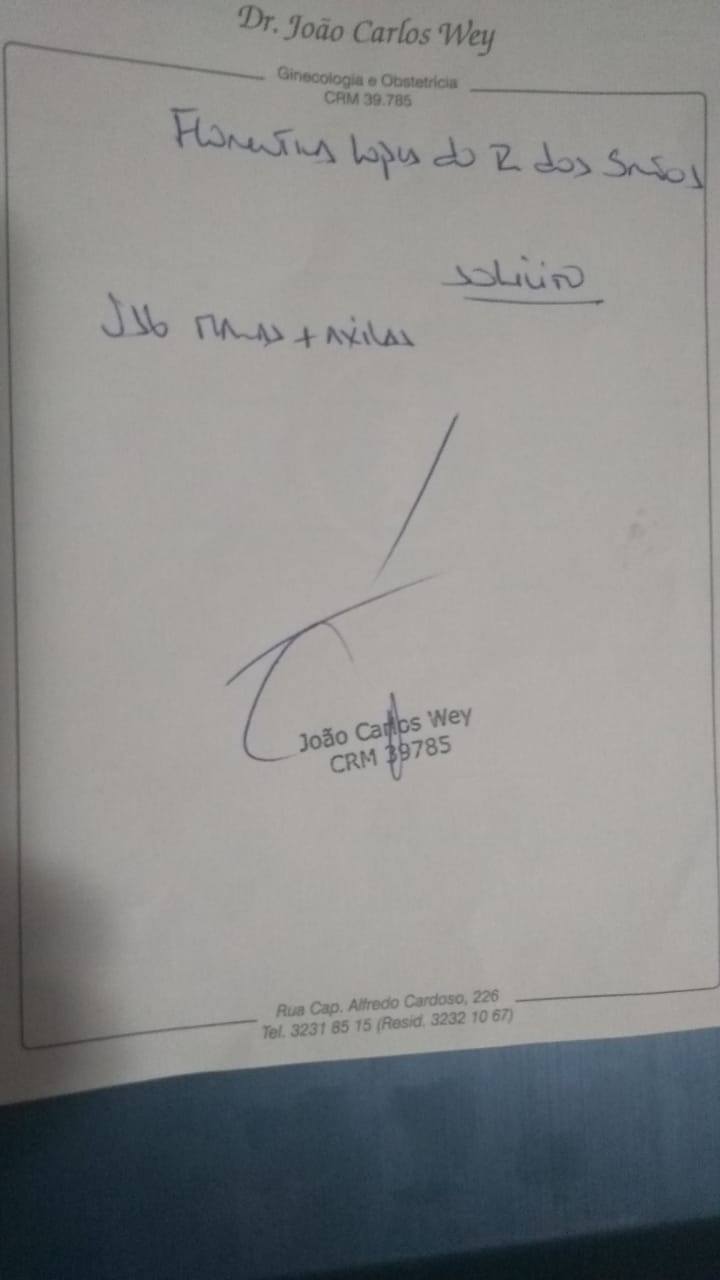 Dr. João Carlos Wey
Ginecologia e Obstetrícia
CRM 39.785
Lopes do R dos Santos
Solicito
USG MAMAS + AXILAS
João Carlos Wey
CRM 39785
Rua Cap. Alfredo Cardoso, 226
Tel. 3231 85 15 (Resid. 3232 10 67)